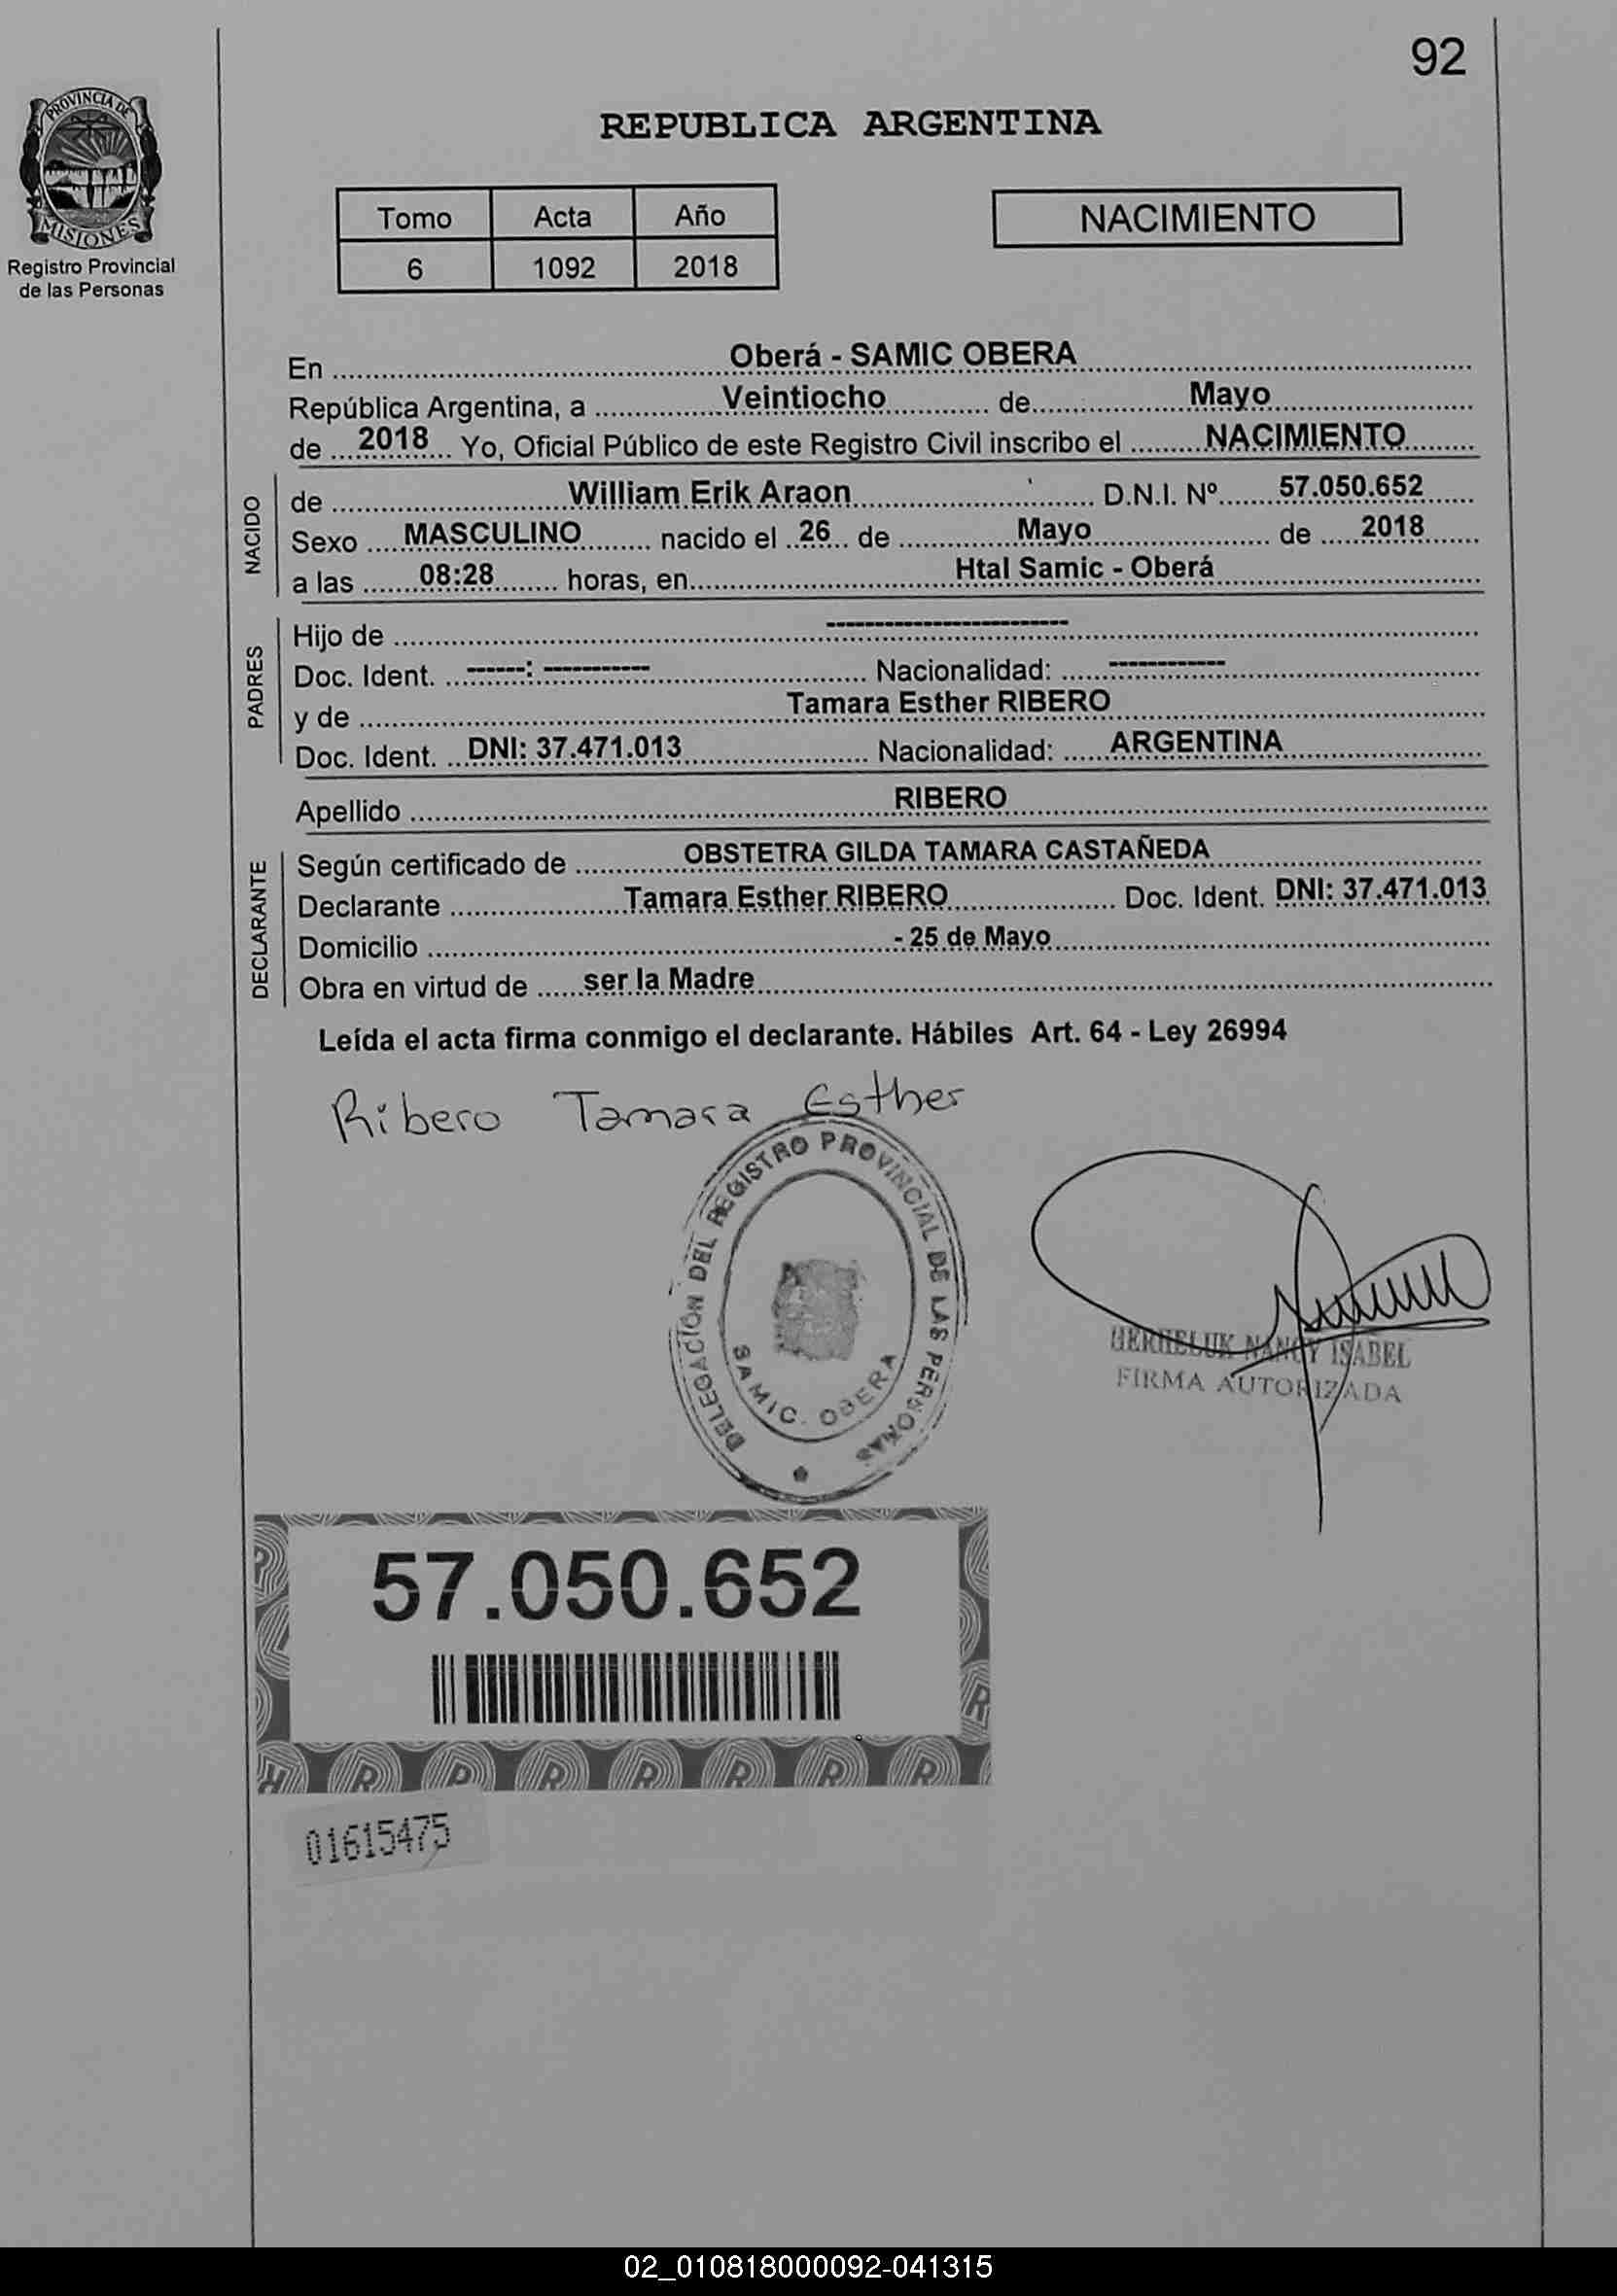 92
PROVINCIA DE
MISIONES
Registro Provincial
de las Personas
REPUBLICA ARGENTINA
Tomo Acta Año
6 1092 2018
NACIMIENTO
En Oberá - SAMIC OBERA
República Argentina, a Veintiocho de Mayo
de 2018 Yo, Oficial Público de este Registro Civil inscribo el NACIMIENTO
NACIDO
de William Erik Araon D.N.I. Nº 57.050.652
Sexo MASCULINO nacido el 26 de Mayo de 2018
a las 08:28 horas, en Htal Samic - Oberá
PADRES
Hijo de -------------------------
Doc. Ident. ------: ----------- Nacionalidad: ------------
y de Tamara Esther RIBERO
Doc. Ident. DNI: 37.471.013 Nacionalidad: ARGENTINA
Apellido RIBERO
DECLARANTE
Según certificado de OBSTETRA GILDA TAMARA CASTAÑEDA
Declarante Tamara Esther RIBERO Doc. Ident. DNI: 37.471.013
Domicilio - 25 de Mayo
Obra en virtud de ser la Madre
Leída el acta firma conmigo el declarante. Hábiles Art. 64 - Ley 26994
Ribero Tamara Esther
DELEGACIÓN DEL REGISTRO PROVINCIAL DE LAS PERSONAS
SAMIC. OBERA
NANCY ISABEL
FIRMA AUTORIZADA
57.050.652
01615475
02_010818000092-041315